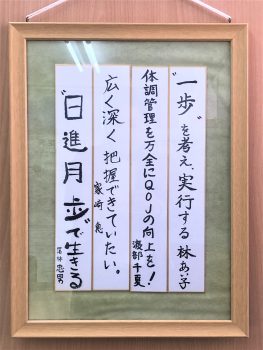 〝一歩〟を考え、実行する 林あい子
体調管理を万全にQOJの向上を! 渡部千夏
広く深く把握できていたい。
家崎
〝日進月歩〟で生きる
忠男